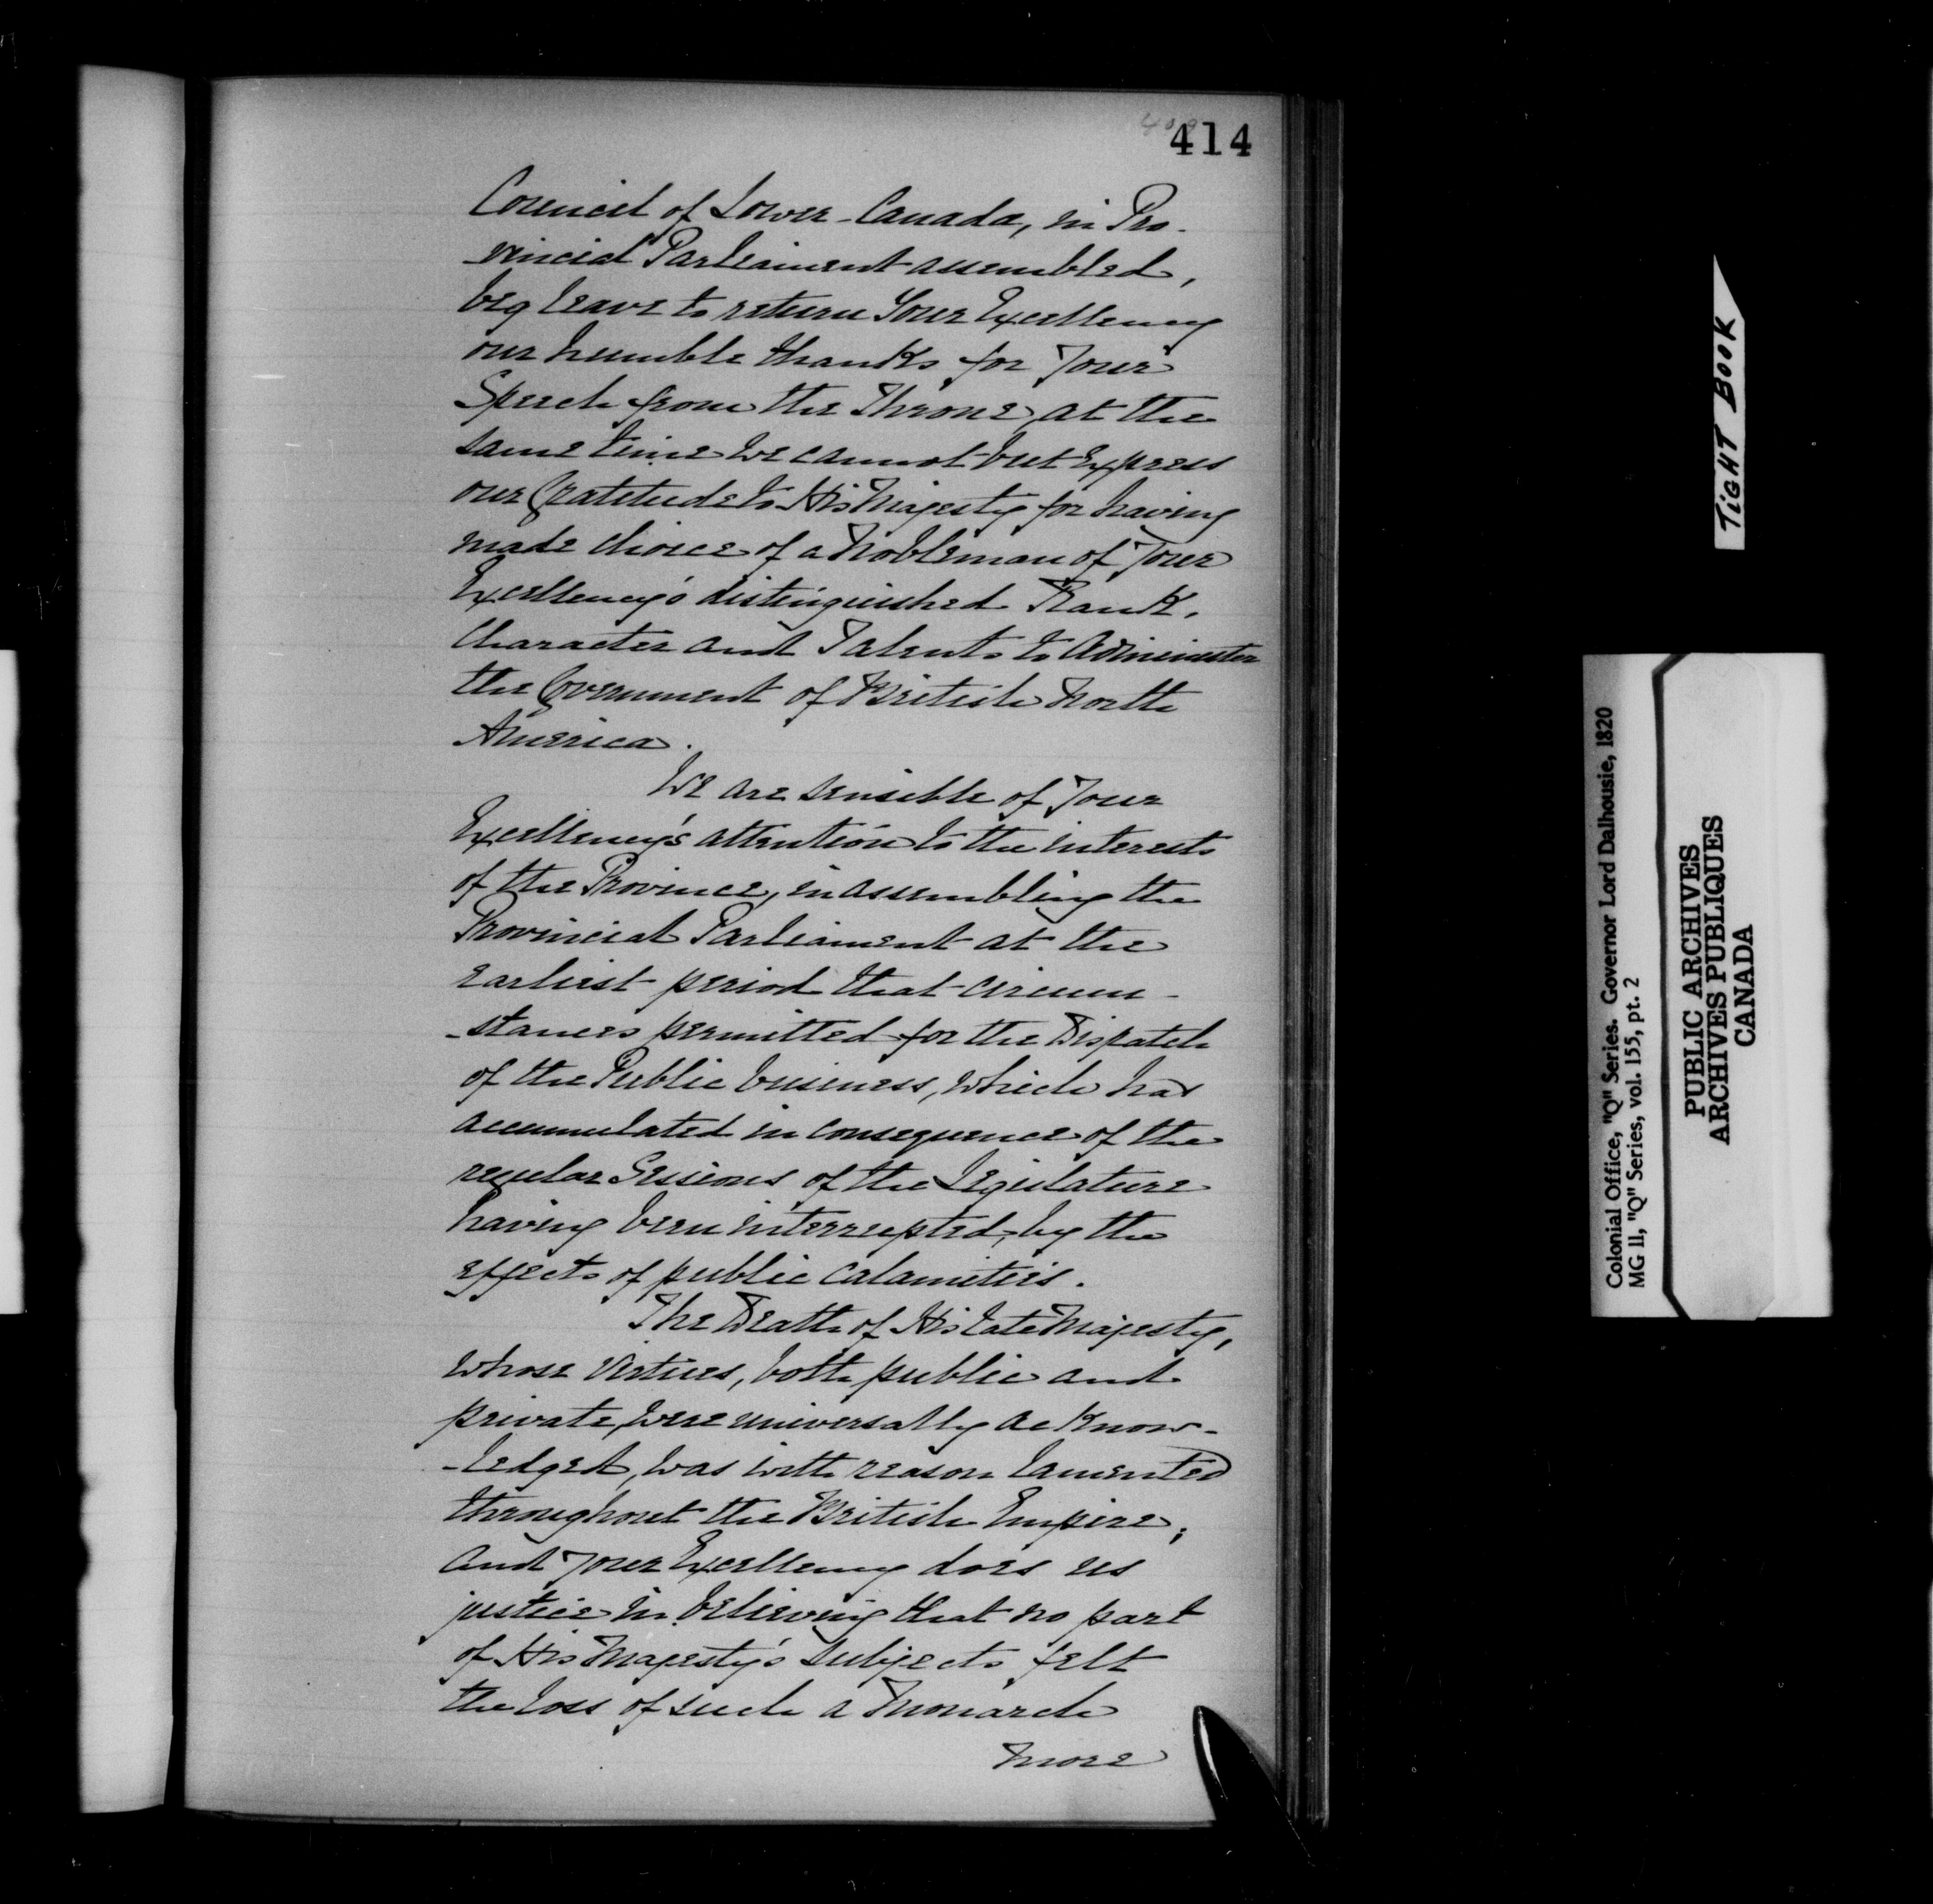 414
Council of Lower-Canada, in Pro-
-vincial Parliament assembled,
beg leave to return Your Excellency
our humble thanks for Your
Speech from the Throne, at the
same time we cannot but express
our Gratitude to His Majesty for having
made choice of a Nobleman of Your
Excellency's distinguished Rank,
Character and Talents to Administer
the Government of British North
America.
We are sensible of Your
Excellency's attention to the interests
of the Province, in assembling the
Provincial Parliament at the
earliest period that circum-
-stances permitted for the Dispatch
of the Public business, which has
accumulated in consequence of the
regular Sessions of the Legislature
having been interrupted, by the
effects of public calamities.
The Death of His late Majesty,
whose Virtues, both public and
private, were universally acknow-
-ledged, was with reason lamented
throughout the British Empire;
and Your Excellency does us
justice in believing that no part
of His Majesty's subjects felt
the loss of such a Monarch
more
TIGHT BOOK
Colonial Office, "Q" Series. Governor Lord Dalhousie, 1820
MG 11, "Q" Series, vol. 155, pt. 2
PUBLIC ARCHIVES
ARCHIVES PUBLIQUES
CANADA